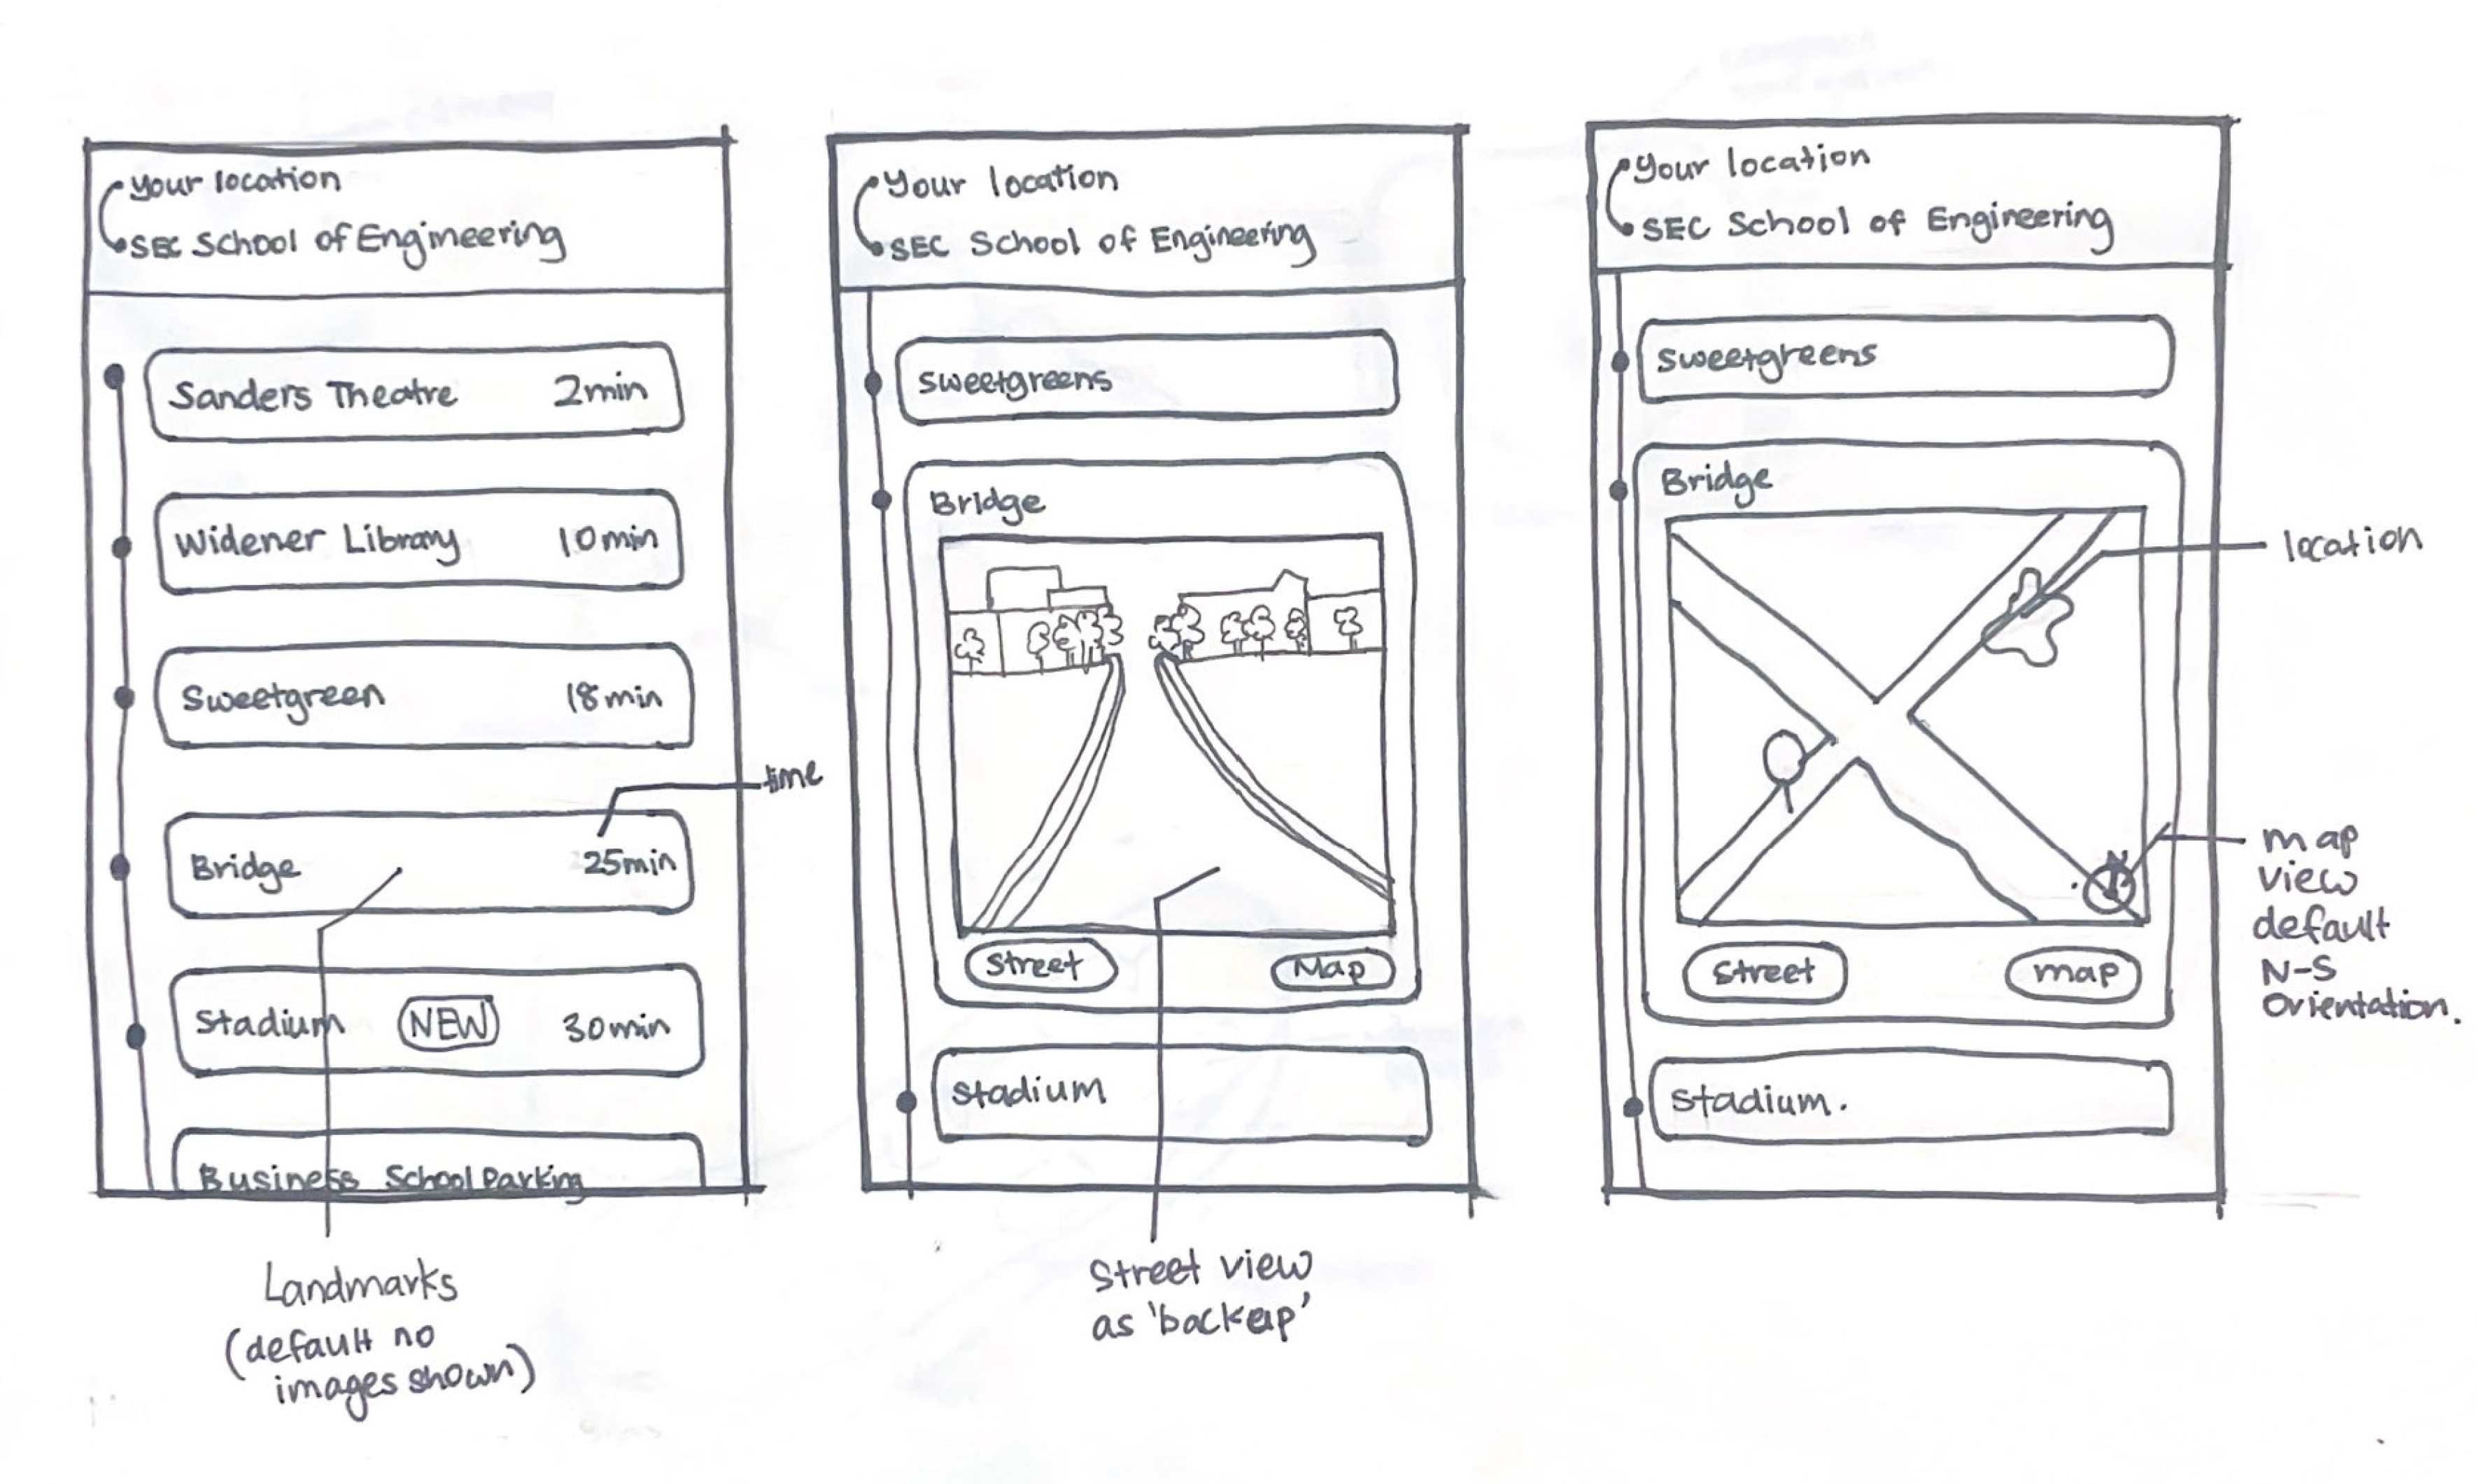 Your location
SEC School of Engineering
Sanders Theatre 2min
Widener Library 10min
Sweetgreen 18min
time
Bridge 25min
Stadium NEW 30min
Business School Parking
Landmarks
(default no
images shown)
Your location
SEC School of Engineering
sweetgreens
Bridge
Street Map
stadium
Street view
as 'backup'
Your location
SEC School of Engineering
sweetgreens
Bridge
location
N
map
view
default
N-S
Orientation.
Street map
stadium.